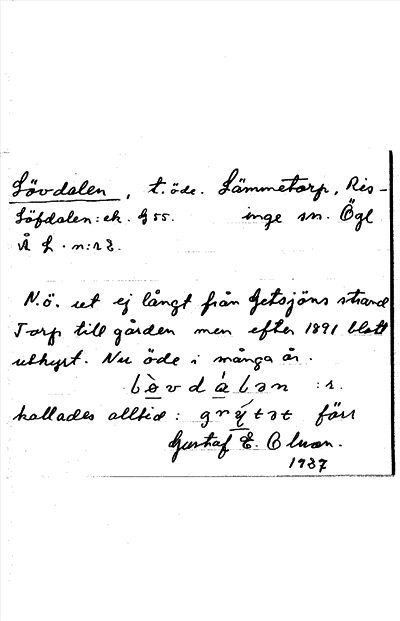 Lövdalen, t. öde. Lämmetorp, Ris-
Löfdalen: ek. G 55. inge sn. Ögl
Å L. n:r 3.
N.ö. ut ej långt från Getsjöns strand
Torp till gården men efter 1891 blott
uthyrt. Nu öde i många år.
lò̲v dá̲lən :r.
kallades alltid: grý̲tət förr
Gustaf E. Olsson.
1937